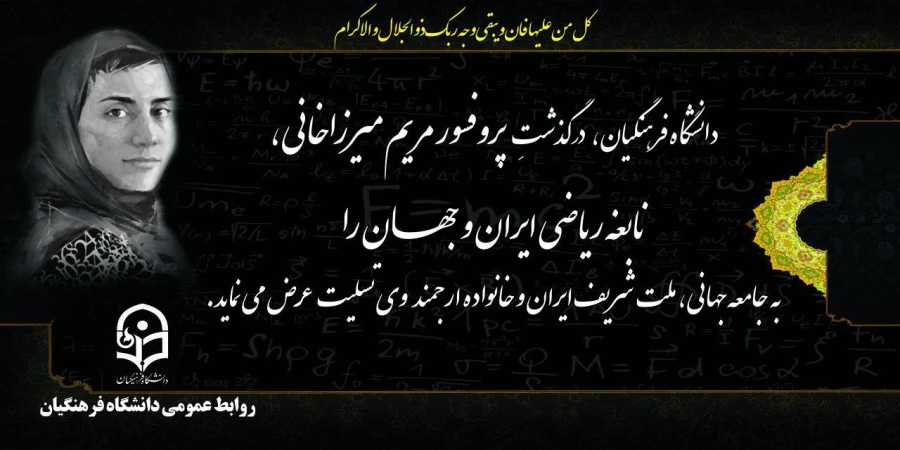 کل من علیها فان و یبقی وجه ربک ذو الجلال و الاکرام
دانشگاه فرهنگیان، درگذشتِ پروفسور مریم میرزاخانی،
نابغه ریاضی ایران و جهان را
به جامعه جهانی، ملت شریف ایران و خانواده ارجمند وی تسلیت عرض می نماید.
دانشگاه فرهنگیان
روابط عمومی دانشگاه فرهنگیان